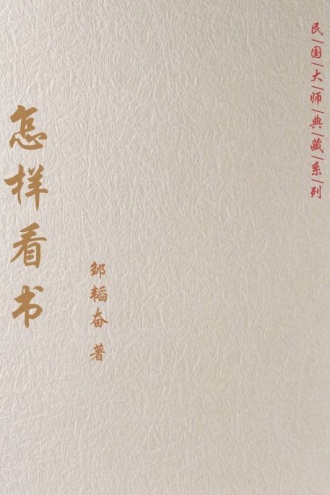 民国大师典藏系列
怎样看书
邹韬奋 著